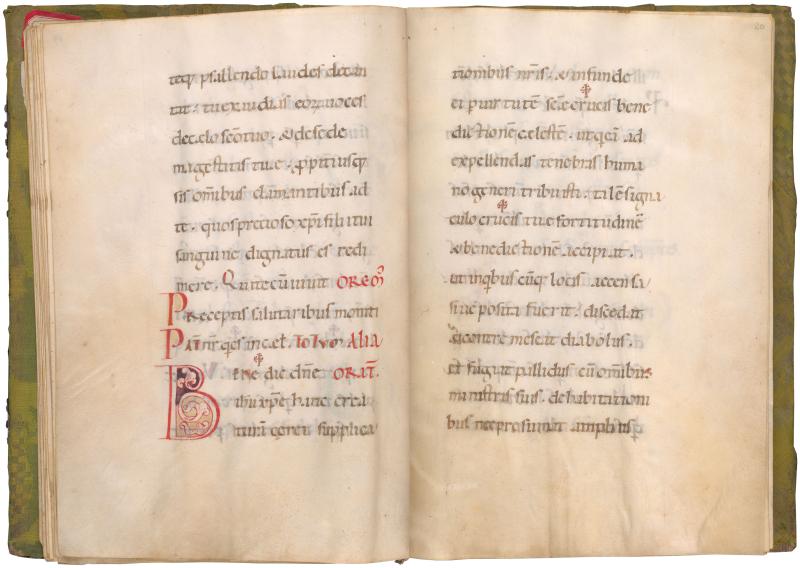 teq; psallendo laudes decan
tat. tu exaudias eorum voces
de celo sc̄o tuo. & de sede
magestatis tue. p̄pitiusq;
sis omībus clamantibus ad
te. quos pretioso xp̄i filii tui
sanguine dignatus es redi
mere. Qui tecum uiuit OREM̄
Preceptis salutaribus moniti
PAT̄ nr̄ qui es in cel. TOTUM ALIA
Bene dic dn̄e ORAT̄.
ihu xp̄e hanc crea
turā cerei supplica
tiombus nr̄is. & infunde
ei p uirtutē sc̄e crucis bene
dictionē celestē. ut qui eā ad
expellendas tenebras huma
no generi tribuisti. talē signa
culo crucis tue fortitudinē
& benedictionē accipiat.
ut in qbus cūq; locis accensa
siue posita fuerit. discedat
& contremescat diabolus.
et fugiat pallidus cū omībus
ministris suis. de habitationi
bus nec presumat amplius
20